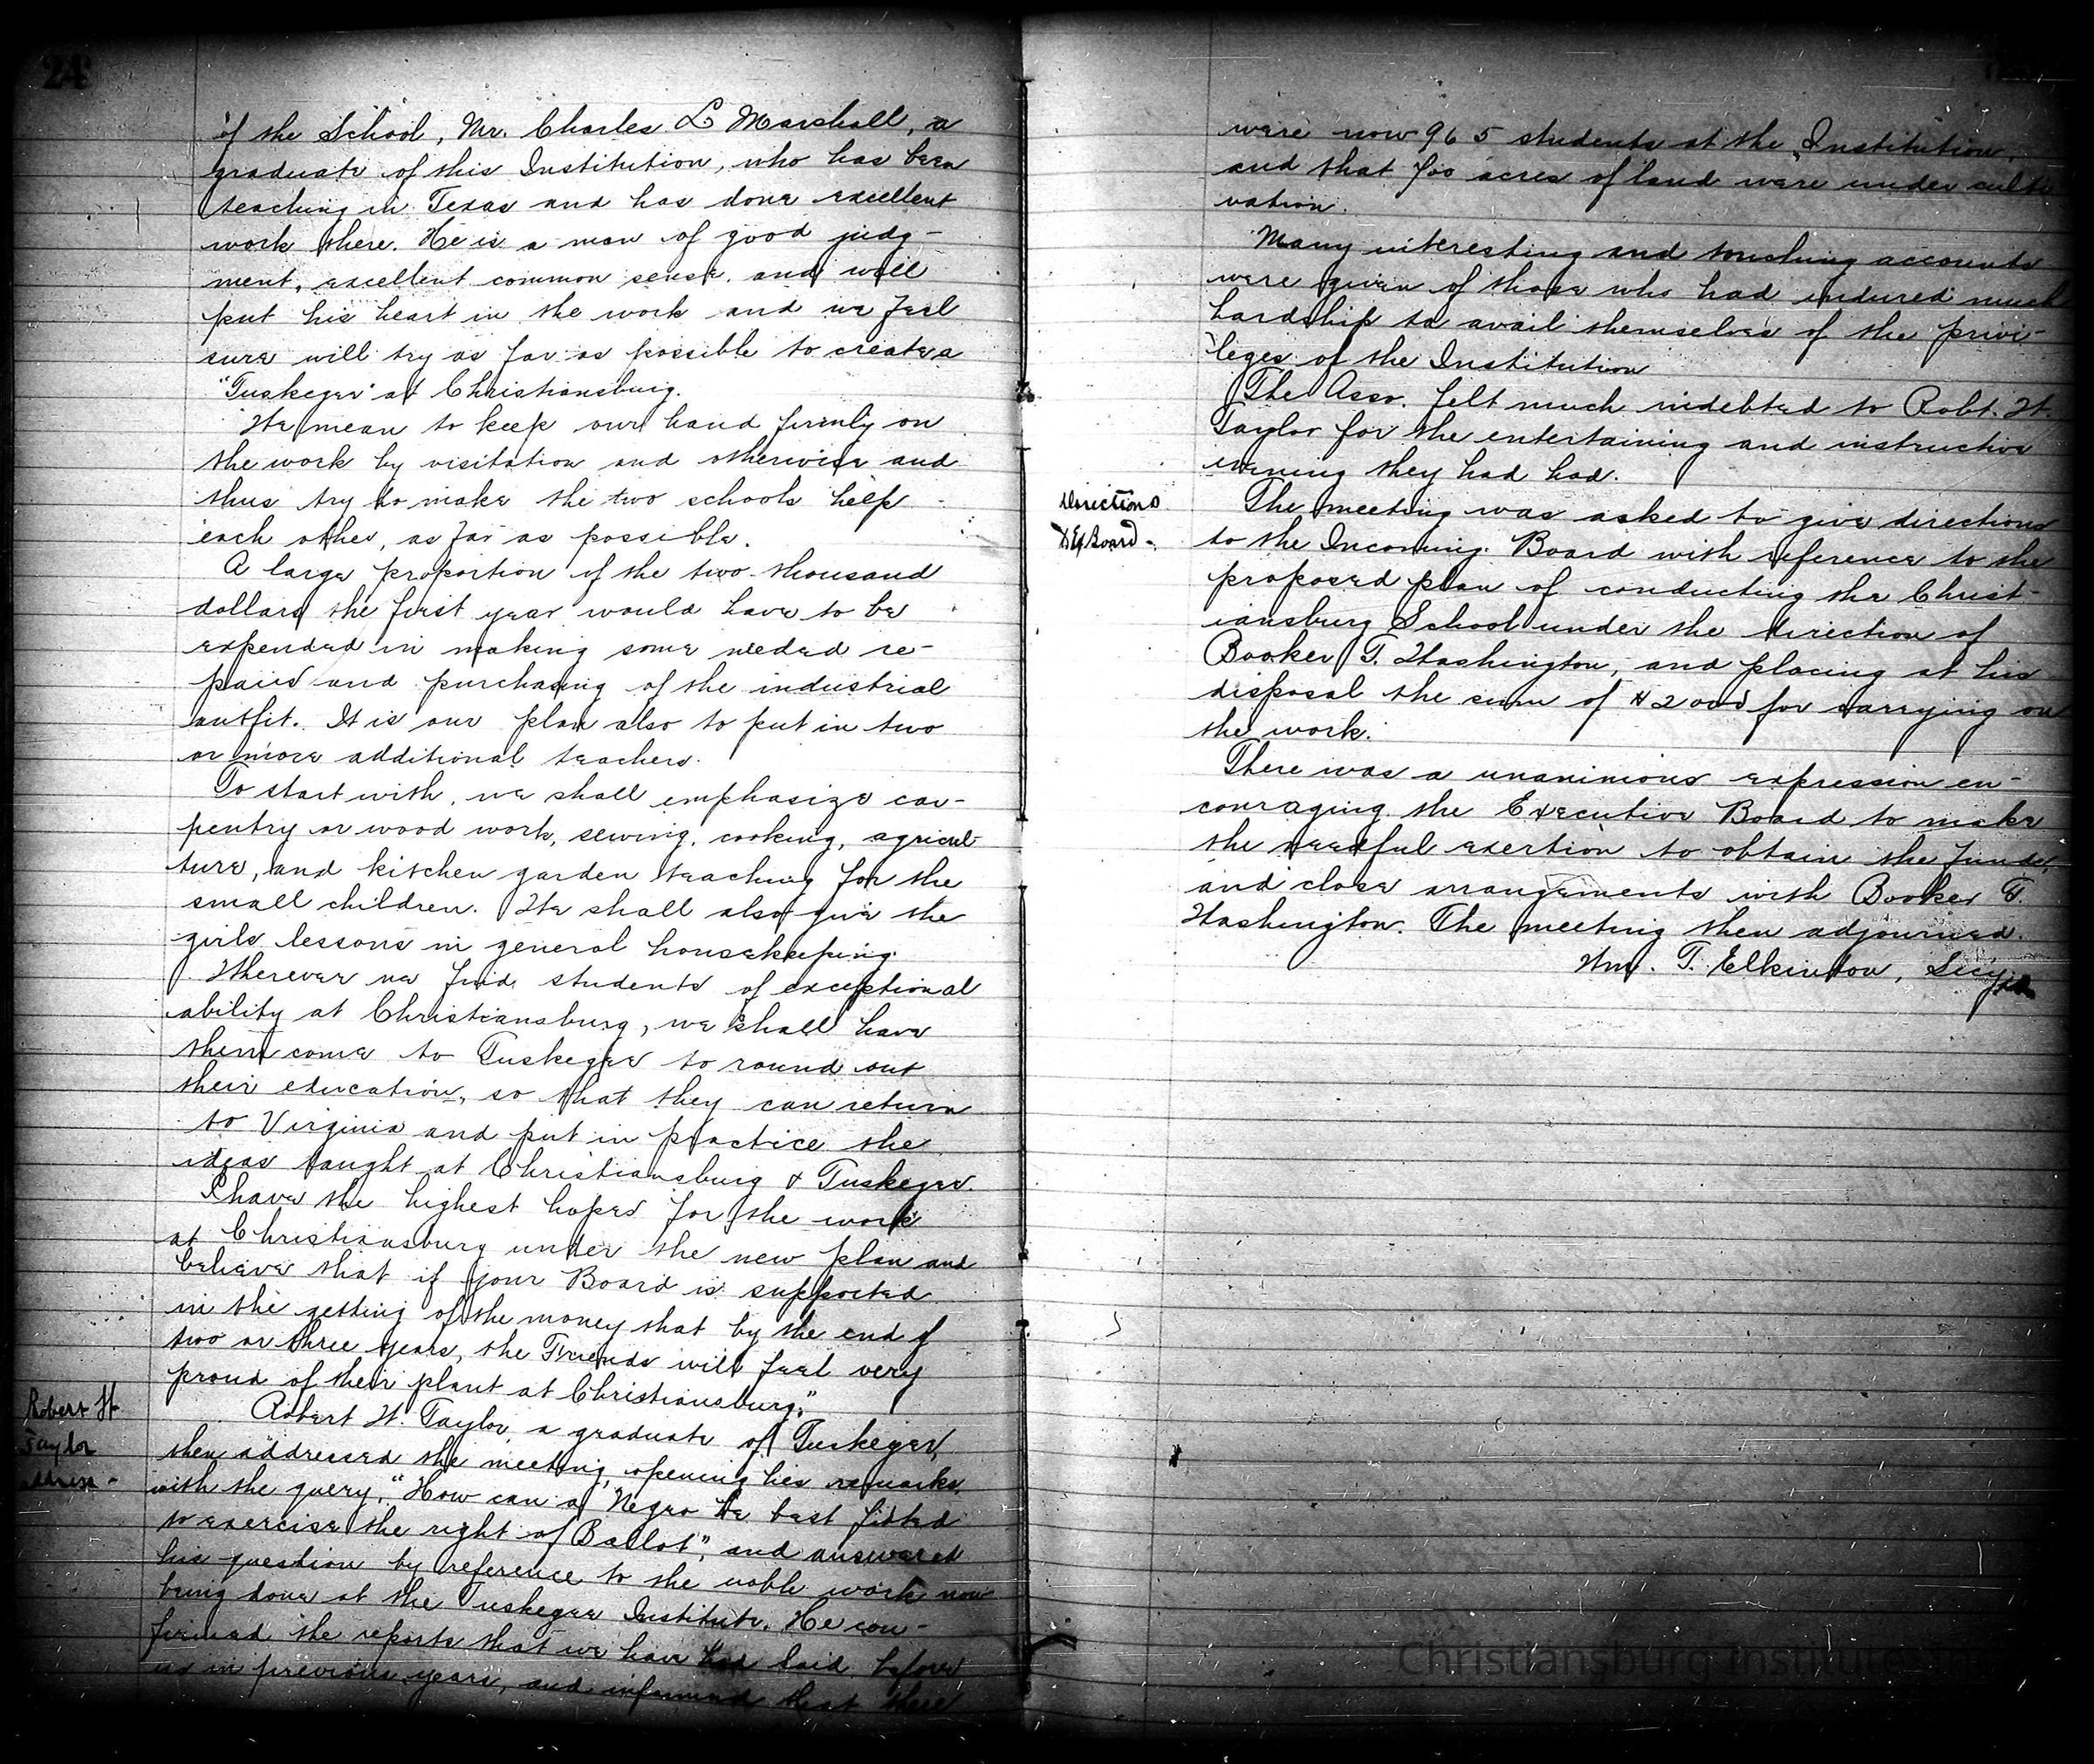 24
of the School, Mr. Charles L Marshall, a
graduate of this Institution, who has been
teaching in Texas and has done excellent
work there. He is a man of good judg-
ment, excellent common sense, and will
put his heart in the work and we feel
sure will try as far as possible to create a
"Tuskegee" at Christiansburg.
We mean to keep our hand firmly on
the work by visitation and otherwise and
thus try to make the two schools help
each other, as far as possible.
A large proportion of the two thousand
dollars the first year would have to be
expended in making some needed re-
pairs and purchasing of the industrial
outfit. It is our plan also to put in two
or more additional teachers.
To start with, we shall emphasize car-
pentry or wood work, sewing, cooking, agricul-
ture, and kitchen garden teaching for the
small children. We shall also give the
girls lessons in general housekeeping.
Wherever we find students of exceptional
ability at Christiansburg, we shall have
them come to Tuskegee to round out
their education, so that they can return
to Virginia and put in practice the
ideas taught at Christiansburg & Tuskegee.
I have the highest hopes for the work
at Christiansburg under the new plan and
believe that if your Board is supported
in the getting of the money that by the end of
two or three years, the Friends will feel very
proud of their plant at Christiansburg."
Robert W
Taylor
address -
Robert W. Taylor, a graduate of Tuskegee,
then addressed the meeting, opening his remarks
with the query, "How can a Negro be best fitted
to exercise the right of Ballot", and answered
his question by reference to the noble work now
being done at the Tuskegee Institute. He con-
firmed the reports that we have had laid before
us in previous years, and informed that there
were now 965 students at the Institution,
and that 700 acres of land were under culti
vation.
Many interesting and touching accounts
were given of those who had endured much
hardship to avail themselves of the privi-
leges of the Institution
The Asso. felt much indebted to Robt. W.
Taylor for the entertaining and instructive
evening they had had.
Directions
The meeting was asked to give directions
to the Incoming Board with reference to the
proposed plan of conducting the Christ-
iansburg School under the direction of
Booker T. Washington, and placing at his
disposal the sum of $2000 for carrying on
the work.
There was a unanimous expression en-
couraging the Executive Board to make
the needful exertion to obtain the funds,
and close arrangements with Booker T.
Washington. The meeting then adjourned.
Wm. T. Elkinton, Secy
Christiansburg Institute, Inc